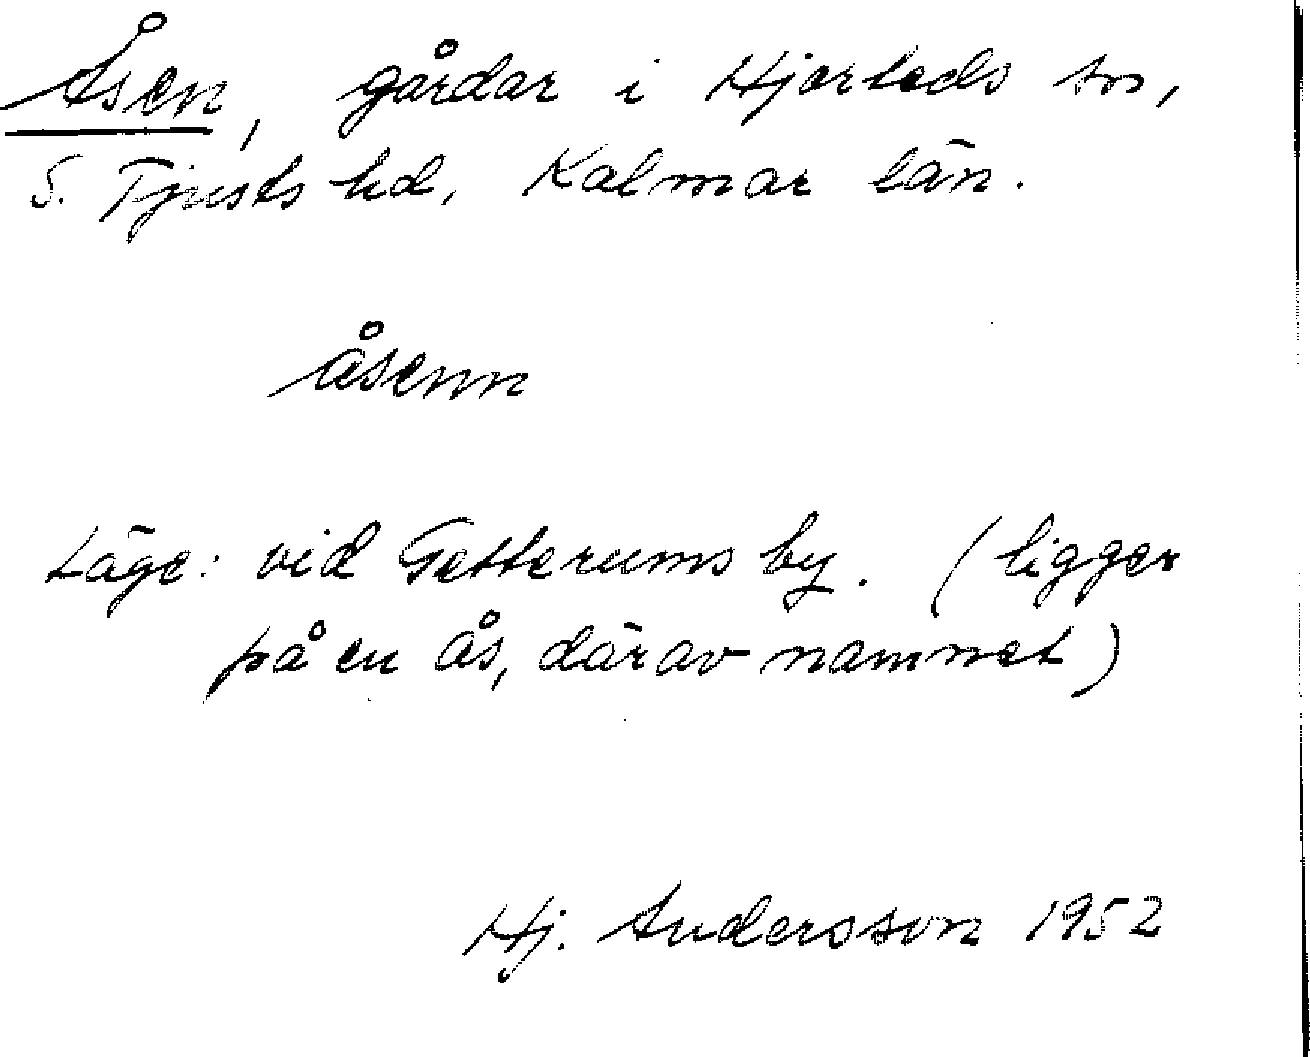 Åsen, gårdar i Hjorteds sn,
S. Tjusts hd, Kalmar län.
åsenn
Läge: vid Getterums by. (ligger
på en ås, därav namnet)
Hj. Andersson 1952